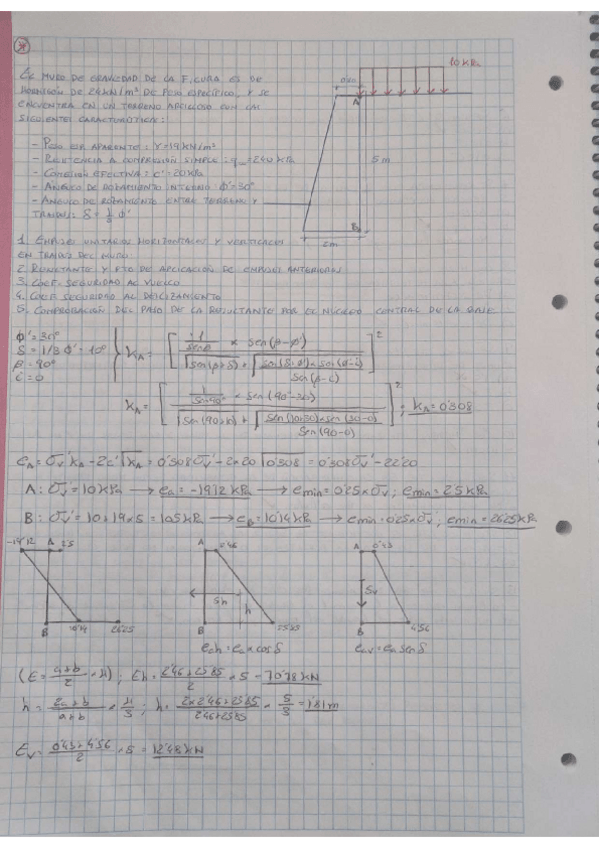 10 kPa
EL MURO DE GRAVEDAD DE LA FIGURA ES DE
HORMIGÓN DE 24KN/m³ DE PESO ESPECÍFICO, Y SE
ENCUENTRA EN UN TERRENO ARCILLOSO CON LAS
SIGUIENTES CARACTERÍSTICAS:
A
5m
- PESO ESP. APARENTE: γ=19KN/m³
- RESISTENCIA A COMPRESIÓN SIMPLE: q = 240 kPa
- COHESIÓN EFECTIVA: c'=20kPa
- ÁNGULO DE ROZAMIENTO INTERNO: ϕ'=30°
- ÁNGULO DE ROZAMIENTO ENTRE TERRENO Y
TRASDÓS: δ = 1/3 ϕ'
B
1. EMPUJES UNITARIOS HORIZONTALES Y VERTICALES
EN TRASDÓS DEL MURO
2. RESULTANTE Y PTO DE APLICACIÓN DE EMPUJES ANTERIORES
3. COEF. SEGURIDAD AL VUELCO
4. COEF SEGURIDAD AL DESLIZAMIENTO
5. COMPROBACIÓN DEL PASO DE LA RESULTANTE POR EL NÚCLEO CENTRAL DE LA BASE
ϕ'=30°
δ = 1/3 ϕ' = 10°
β = 90°
i = 0
KA = [ 1/sen β × sen(β-ϕ') / √sen(β+δ) + √sen(δ+ϕ')×sen(ϕ'-i)/sen(β-i) ]²
KA = [ 1/sen 90° × sen(90°-30) / √sen(90+10) + √sen(10+30)×sen(30-0)/sen(90-0) ]² ; KA=0'308
eA = σv' KA - 2c'√KA = 0'308σv' - 2×20√0'308 = 0'308σv' - 22'20
A: σv'=10kPa → ea = -19'12 kPa → emin = 0'25×σv'; emin = 2'5 kPa
B: σv' = 10+19×5 = 105kPa → ea = 10'14 kPa → emin = 0'25×σv'; emin = 26'25kPa
-19'12 A 2'5
B 10'14 26'25
A 2'46
h
B 25'85
A 0'43
B 4'56
eah = ea × cos δ
eav = ea sen δ
(E = a+b/2 × H); Eh = 2'46+25'85/2 × 5 = 70'78 KN
h = 2a+b/a+b × H/3; h = 2×2'46+25'85/2'46+25'85 × 5/3 = 1'81m
Ev = 0'43+4'56/2 × 5 = 12'48 KN